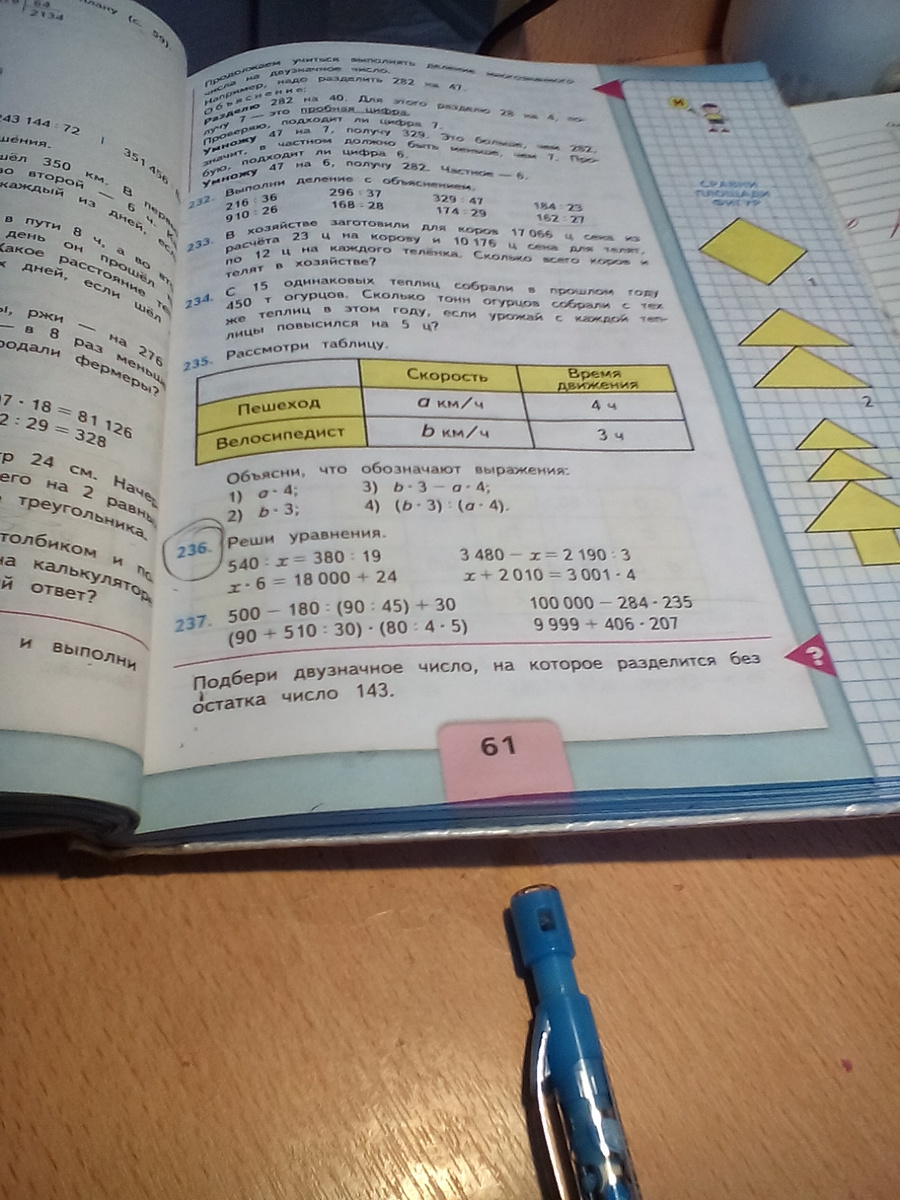 лану (с. 59).
64
2134
243 144 : 72
351 456
шения.
шёл 350 км. В перв
во второй — 6 ч.
каждый из дней, есл
в пути 8 ч, а во вт
день он прошёл
Какое расстояние те
х дней, если шёл
ы, ржи — на 276
— в 8 раз меньше
родали фермеры?
7 · 18 = 81 126
2 : 29 = 328
тр 24 см. Начер
его на 2 равны
е треугольника.
толбиком и по
на калькуляторе
й ответ?
и выполни
Продолжаем учиться выполнять деление многозначного
числа на двузначное число.
Например, надо разделить 282 на 47.
Объяснение:
Разделю 282 на 40. Для этого разделю 28 на 4, по-
лучу 7 — это пробная цифра.
Проверяю, подходит ли цифра 7.
Умножу 47 на 7, получу 329. Это больше, чем 282,
значит, в частном должно быть меньше, чем 7. Про-
бую, подходит ли цифра 6.
Умножу 47 на 6, получу 282. Частное — 6.
232. Выполни деление с объяснением.
216 : 36 296 : 37 329 : 47 184 : 23
910 : 26 168 : 28 174 : 29 162 : 27
233. В хозяйстве заготовили для коров 17 066 ц сена из
расчёта 23 ц на корову и 10 176 ц сена для телят,
по 12 ц на каждого телёнка. Сколько всего коров и
телят в хозяйстве?
234. С 15 одинаковых теплиц собрали в прошлом году
450 т огурцов. Сколько тонн огурцов собрали с тех
же теплиц в этом году, если урожай с каждой теп-
лицы повысился на 5 ц?
235. Рассмотри таблицу.
Скорость Время
движения
Пешеход a км/ч 4 ч
Велосипедист b км/ч 3 ч
Объясни, что обозначают выражения:
1) a · 4; 3) b · 3 − a · 4;
2) b · 3; 4) (b · 3) : (a · 4).
236. Реши уравнения.
540 : x = 380 : 19 3 480 − x = 2 190 : 3
x · 6 = 18 000 + 24 x + 2 010 = 3 001 · 4
237. 500 − 180 : (90 : 45) + 30 100 000 − 284 · 235
(90 + 510 : 30) · (80 : 4 · 5) 9 999 + 406 · 207
Подбери двузначное число, на которое разделится без
остатка число 143.
61
М
СРАВНИ
ПЛОЩАДИ
ФИГУР
1
2
?